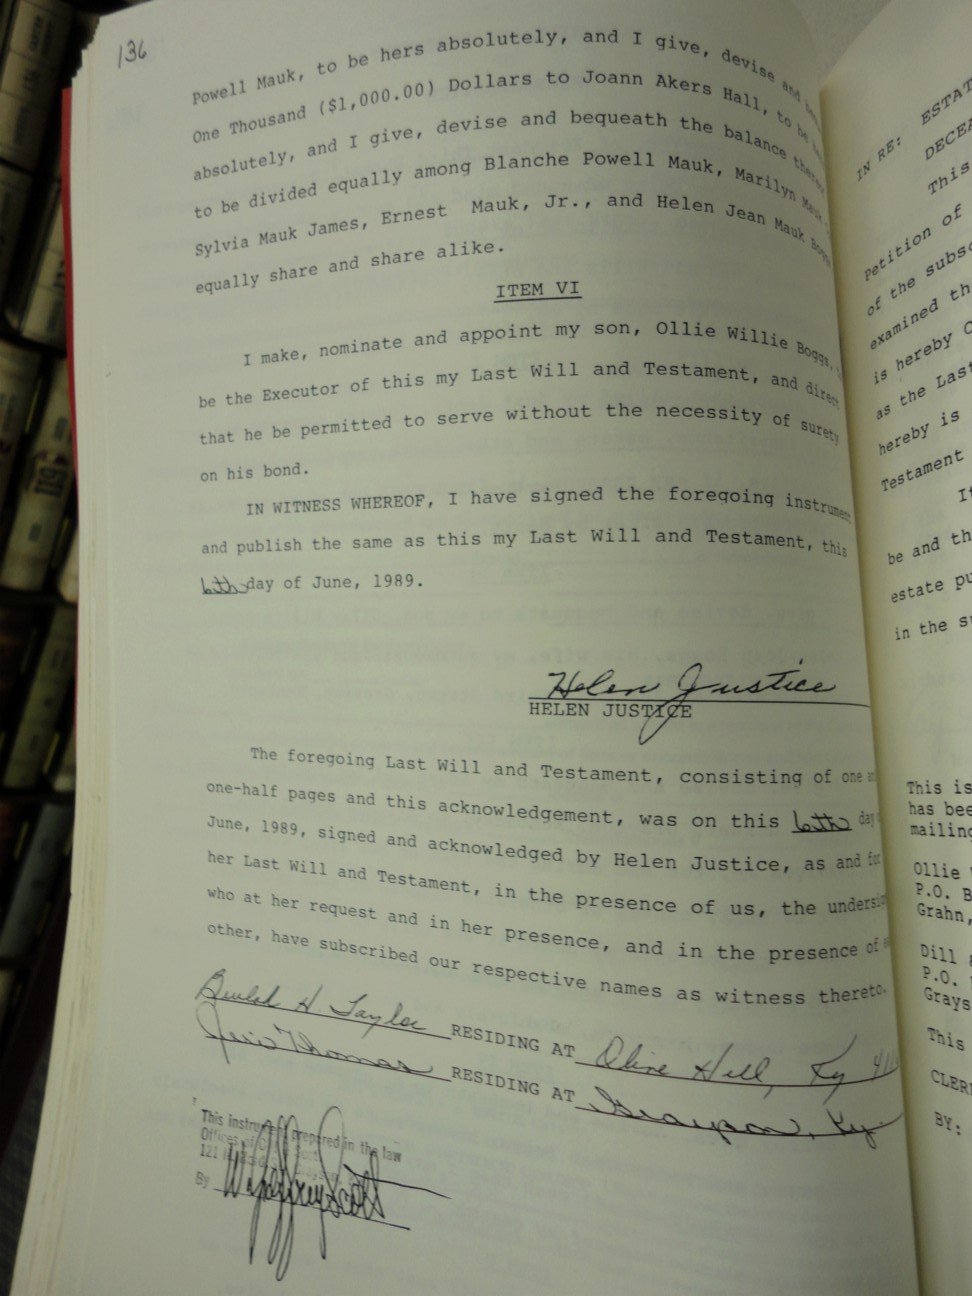 136
Powell Mauk, to be hers absolutely, and I give, devise and
One Thousand ($1,000.00) Dollars to Joann Akers Hall, to be
absolutely, and I give, devise and bequeath the balance thereof
to be divided equally among Blanche Powell Mauk, Marilyn Mauk
Sylvia Mauk James, Ernest Mauk, Jr., and Helen Jean Mauk Boggs
equally share and share alike.
ITEM VI
I make, nominate and appoint my son, Ollie Willie Boggs,
be the Executor of this my Last Will and Testament, and direct
that he be permitted to serve without the necessity of surety
on his bond.
IN WITNESS WHEREOF, I have signed the foregoing instrument
and publish the same as this my Last Will and Testament, this
6th day of June, 1989.
Helen Justice
HELEN JUSTICE
The foregoing Last Will and Testament, consisting of one
one-half pages and this acknowledgement, was on this 6th day
June, 1989, signed and acknowledged by Helen Justice, as and for
her Last Will and Testament, in the presence of us, the undersi
who at her request and in her presence, and in the presence of
other, have subscribed our respective names as witness thereto.
Beulah H Taylor RESIDING AT Olive Hill, Ky
Thomas RESIDING AT Grayson, Ky.
This instrument prepared in the law
Offices of
121
By W. Jeffrey Scott
IN RE: ESTAT
DECEA
This
Petition of
of the subsc
examined th
is hereby
as the Last
hereby is
Testament
It
be and th
estate pu
in the su
This is
has bee
mailing
Ollie
P.O. B
Grahn,
Dill
P.O.
Grays
This
CLER
BY: